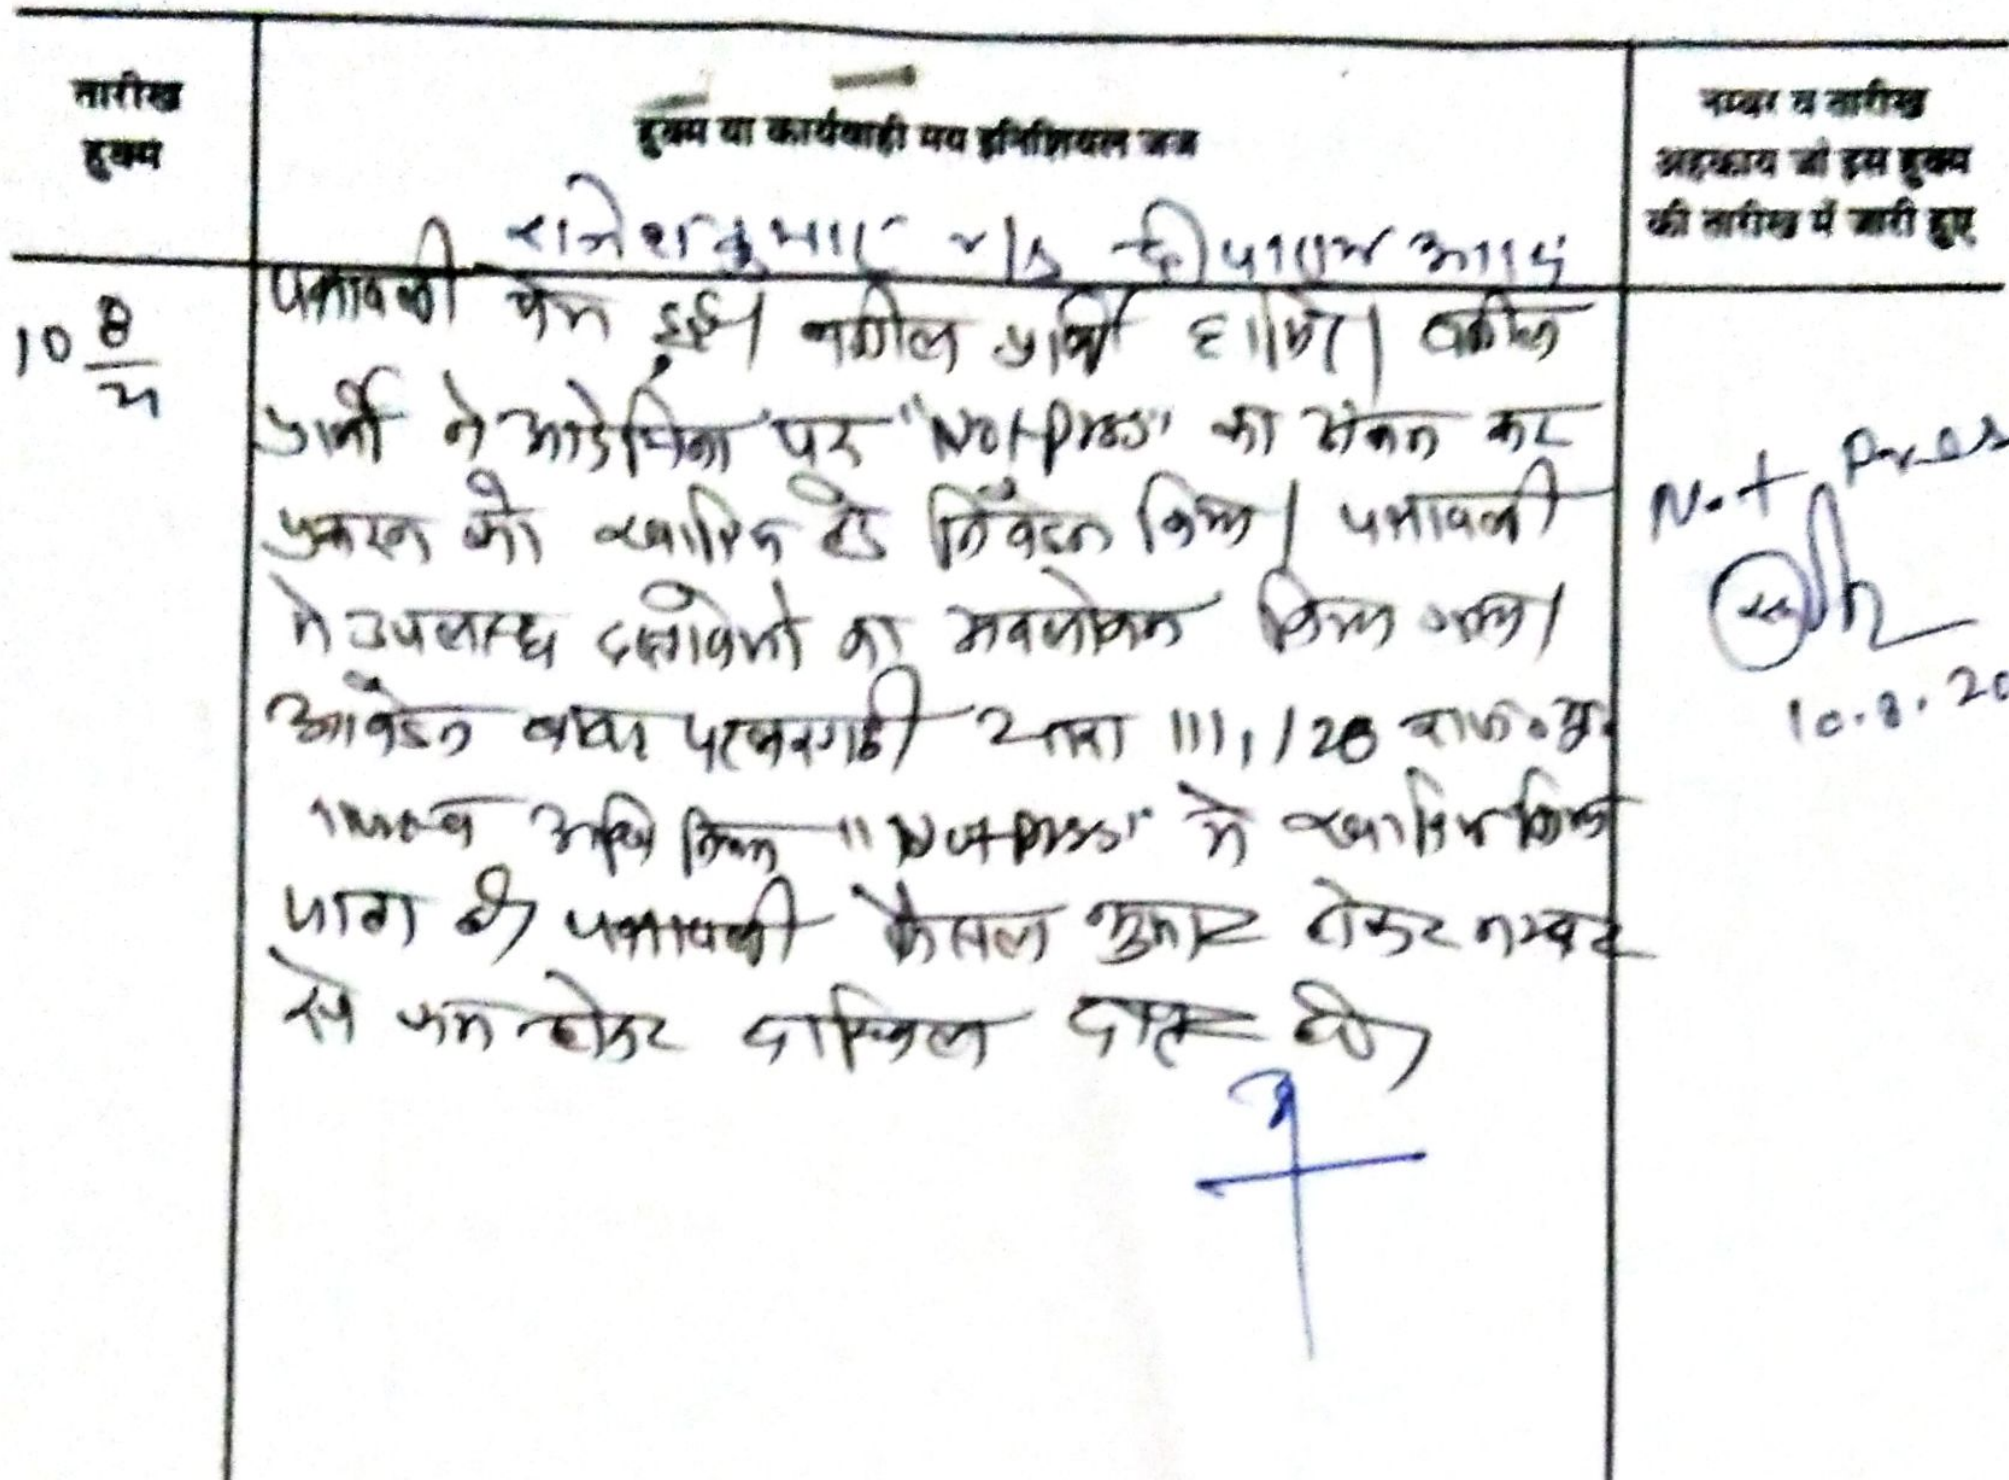 तारीख
हुक्म
हुक्म या कार्यवाही मय इनिशियल जज
नम्बर व तारीख
अहकाम जो इस हुक्म
की तारीख में जारी हुए
रामेश कुमार v/s
पत्रावली पेश हुई। वकील प्रार्थी हाजिर। वकील
10 8
प्रार्थी ने आर्डरशिट पर "Not Press" का अंकन कर
प्रकरण को खारिज हेतु निवेदन किया। पत्रावली
Not Press
मे उपलब्ध दस्तावेजो का अवलोकन किया गया।
आवेदन बाबत पत्थरगढी धारा 111, 128 राज० भू.
10.8.20
राजस्व अधिनियम "Not Press" मे खारिज किया
जाता है पत्रावली फैसल शुमार होकर नम्बर
से कम होकर दाखिल दफ्तर हो